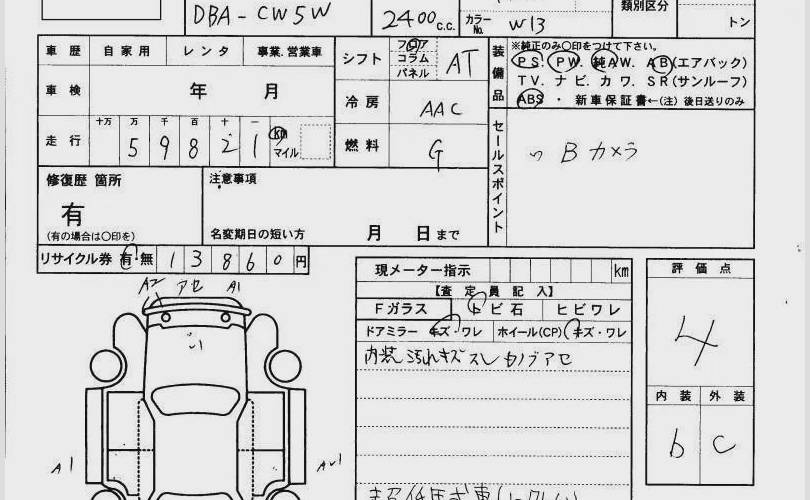 DBA-CW5W
2400 c.c.
カラーNo. W13
類別区分
トン
車歴 自家用 レンタ 事業.営業車
シフト フロア コラム パネル AT
装備品 ※純正のみ〇印をつけて下さい。
PS. PW. 純AW. AB(エアバック)
TV. ナビ. カワ. SR(サンルーフ)
ABS ・ 新車保証書←(注) 後日送りのみ
車検 年 月
冷房 AAC
走行 十万 万 千 百 十 一
59821 km マイル
燃料 G
セールスポイント
Bカメラ
修復歴 箇所
有
(有の場合は〇印を)
注意事項
名変期日の短い方 月 日まで
リサイクル券 有・無 13860円
現メーター指示 km
【査定員記入】
Fガラス トビ石 ヒビワレ
ドアミラー キズ・ワレ ホイール(CP) キズ・ワレ
内装汚れキズスレ
評価点
4
内装 外装
b C
A2 アセ A1
A1